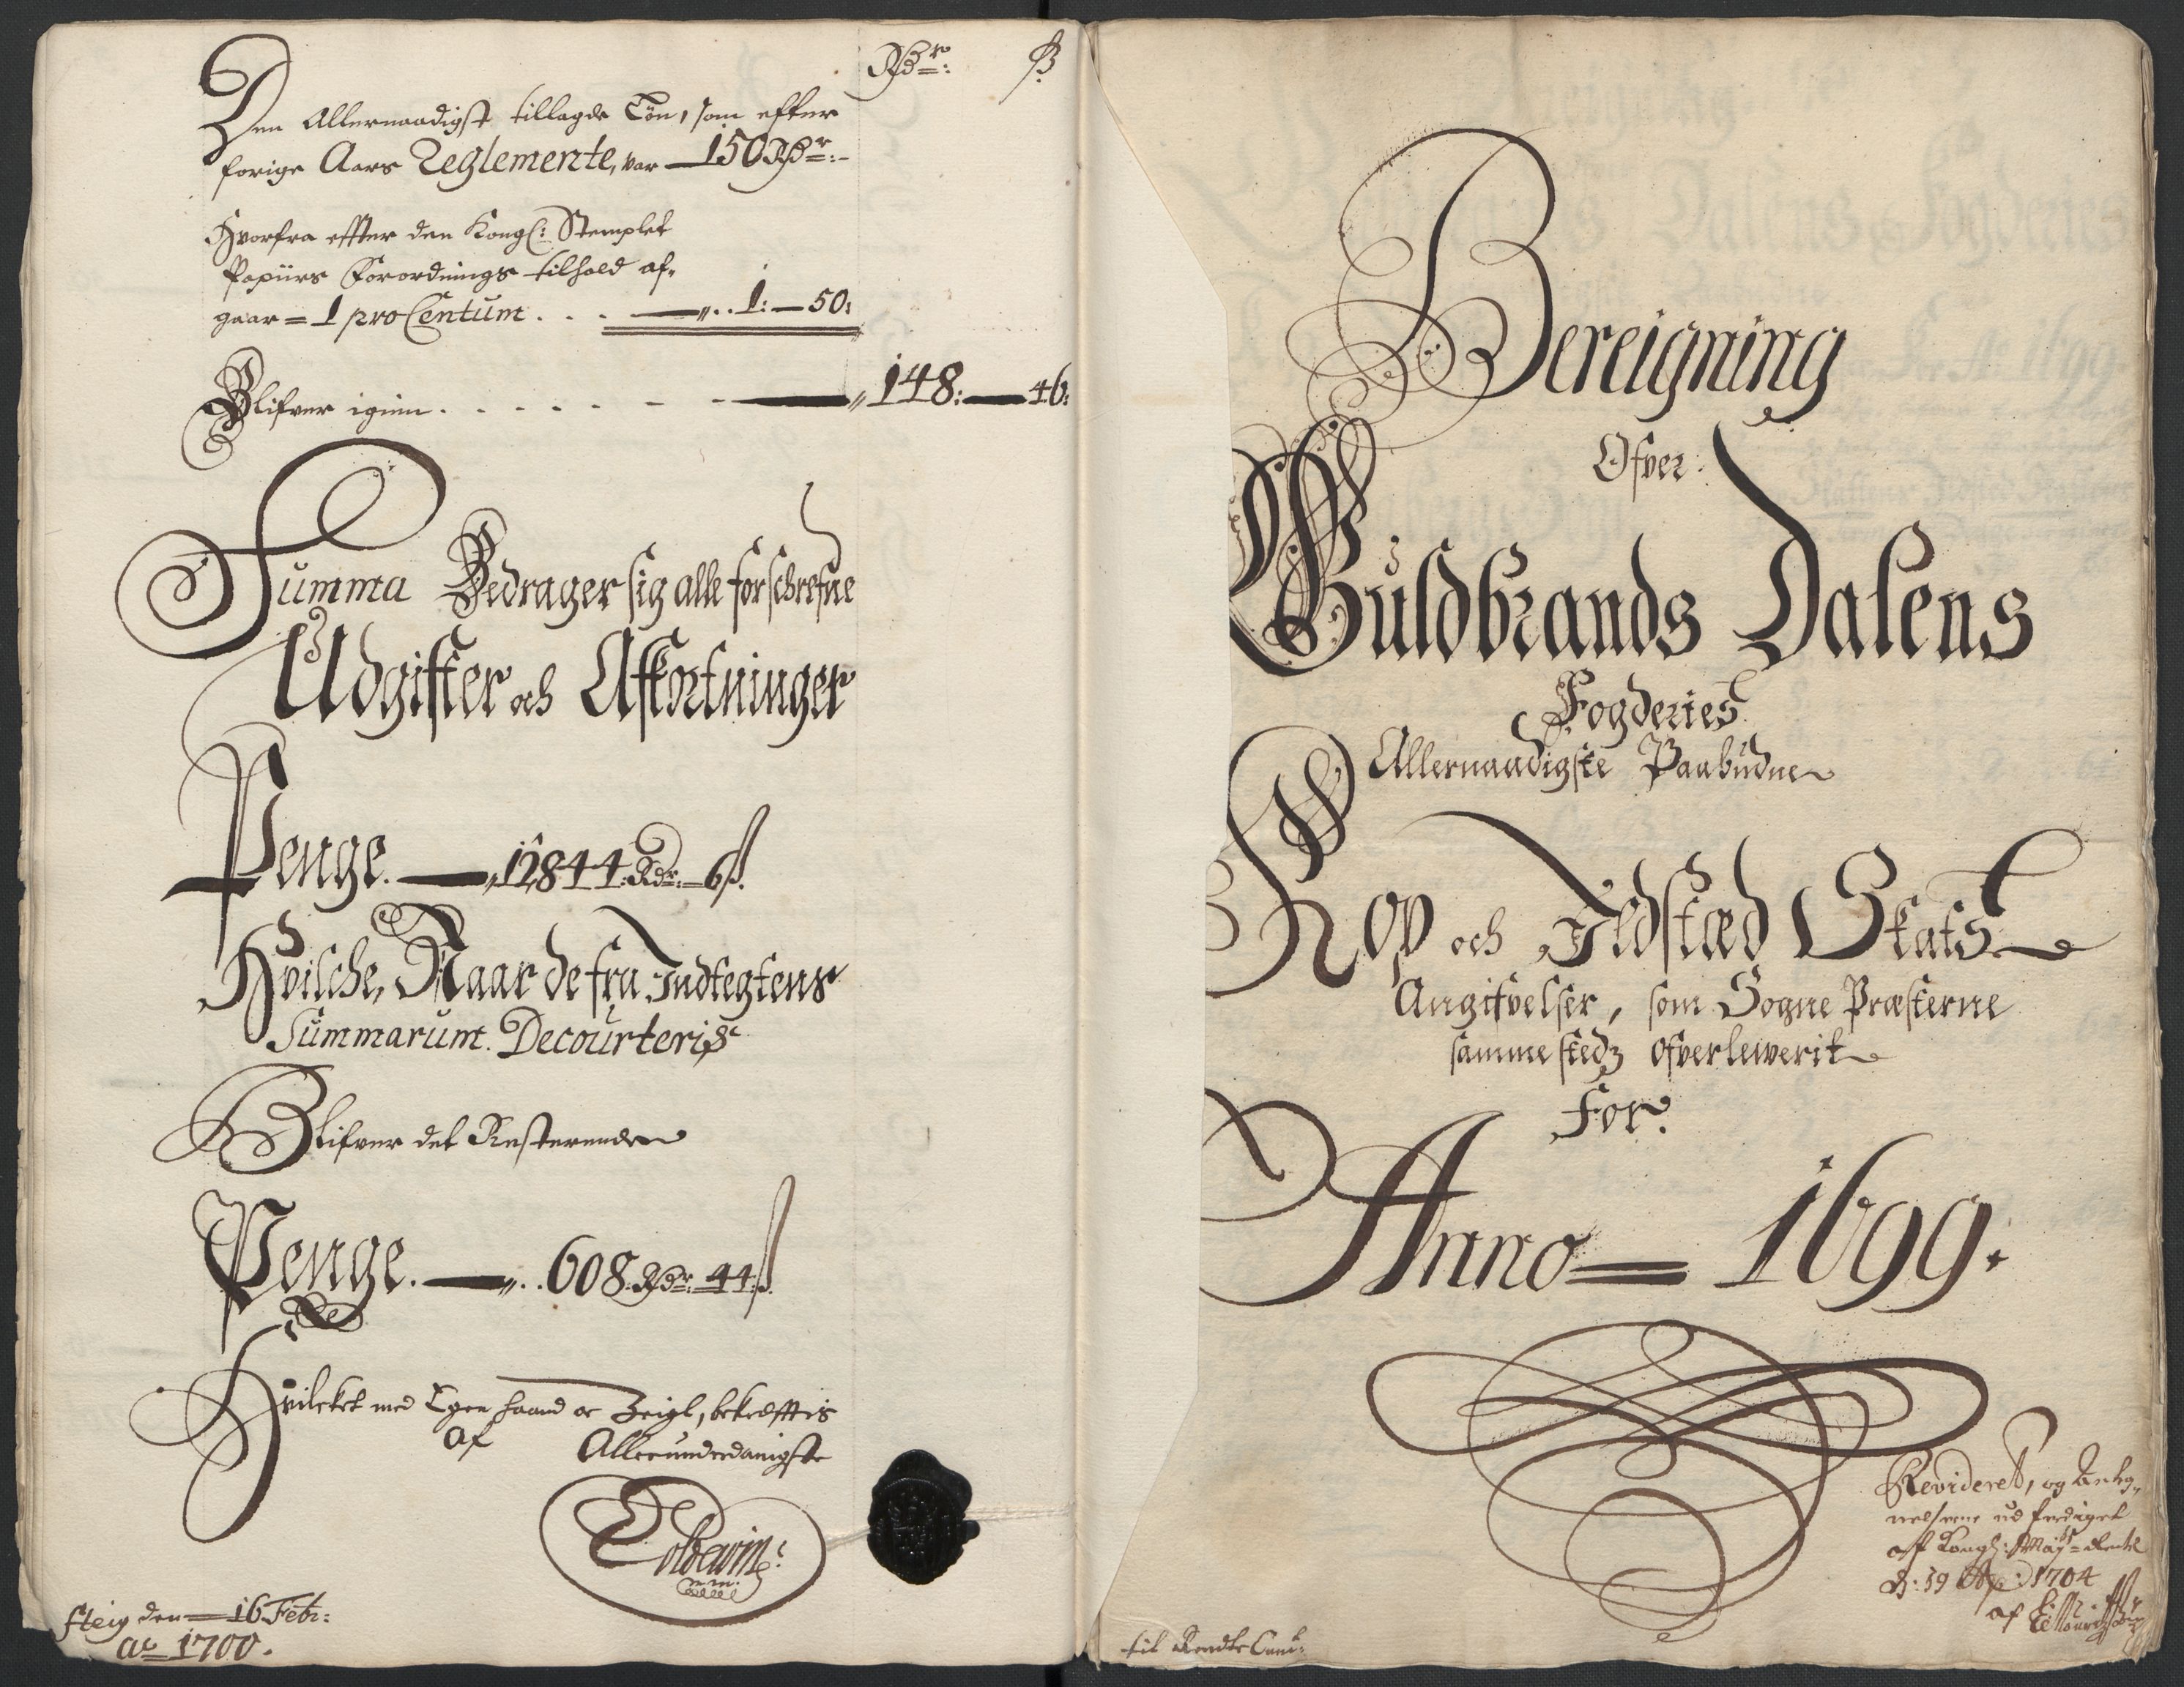 Rdr: ß
Den Allernaadigst tillagde Løn, som efter
forige Aars Reglemente, var — 150 Rdr:
Hvorfra effter den Kongl: Stemplet
Papiirs Forordnings tilhold af-
gaar = 1 pro Centum . . . — „ . . 1: — 50:
Blifver igien . . . . . . — „ 148: — 46:
Summa Bedrager sig alle forschrefne
Udgifter och Afkortninger
Penge. — „ 12844: Rdr: — 6 ß.
Hvilche, Naar de fra Indtegtens
Summarum Decourteris
Blifver det Resterende
Penge. — „ . . 608. Rdr: 44: ß.
Hvilcket med Egen haand oc Zeigl, bekrefftis
af Allerunderdanigste
mm.
Steig den — 16 Febr:
Ao 1700.
Bereigning
Ofver:
Guldbrands Dalens
Fogderies
Allernaadigste Paabudne
Kop och Ildstæd Skats
Angifvelser, som Sogne Præsterne
sammestedz ofverlewerit
For
Anno = 1699.
Revideret, og Anteg-
nelserne ud ferdiget
aff Kongl: Mayts Rente
1704
af
til Rendte Cam: